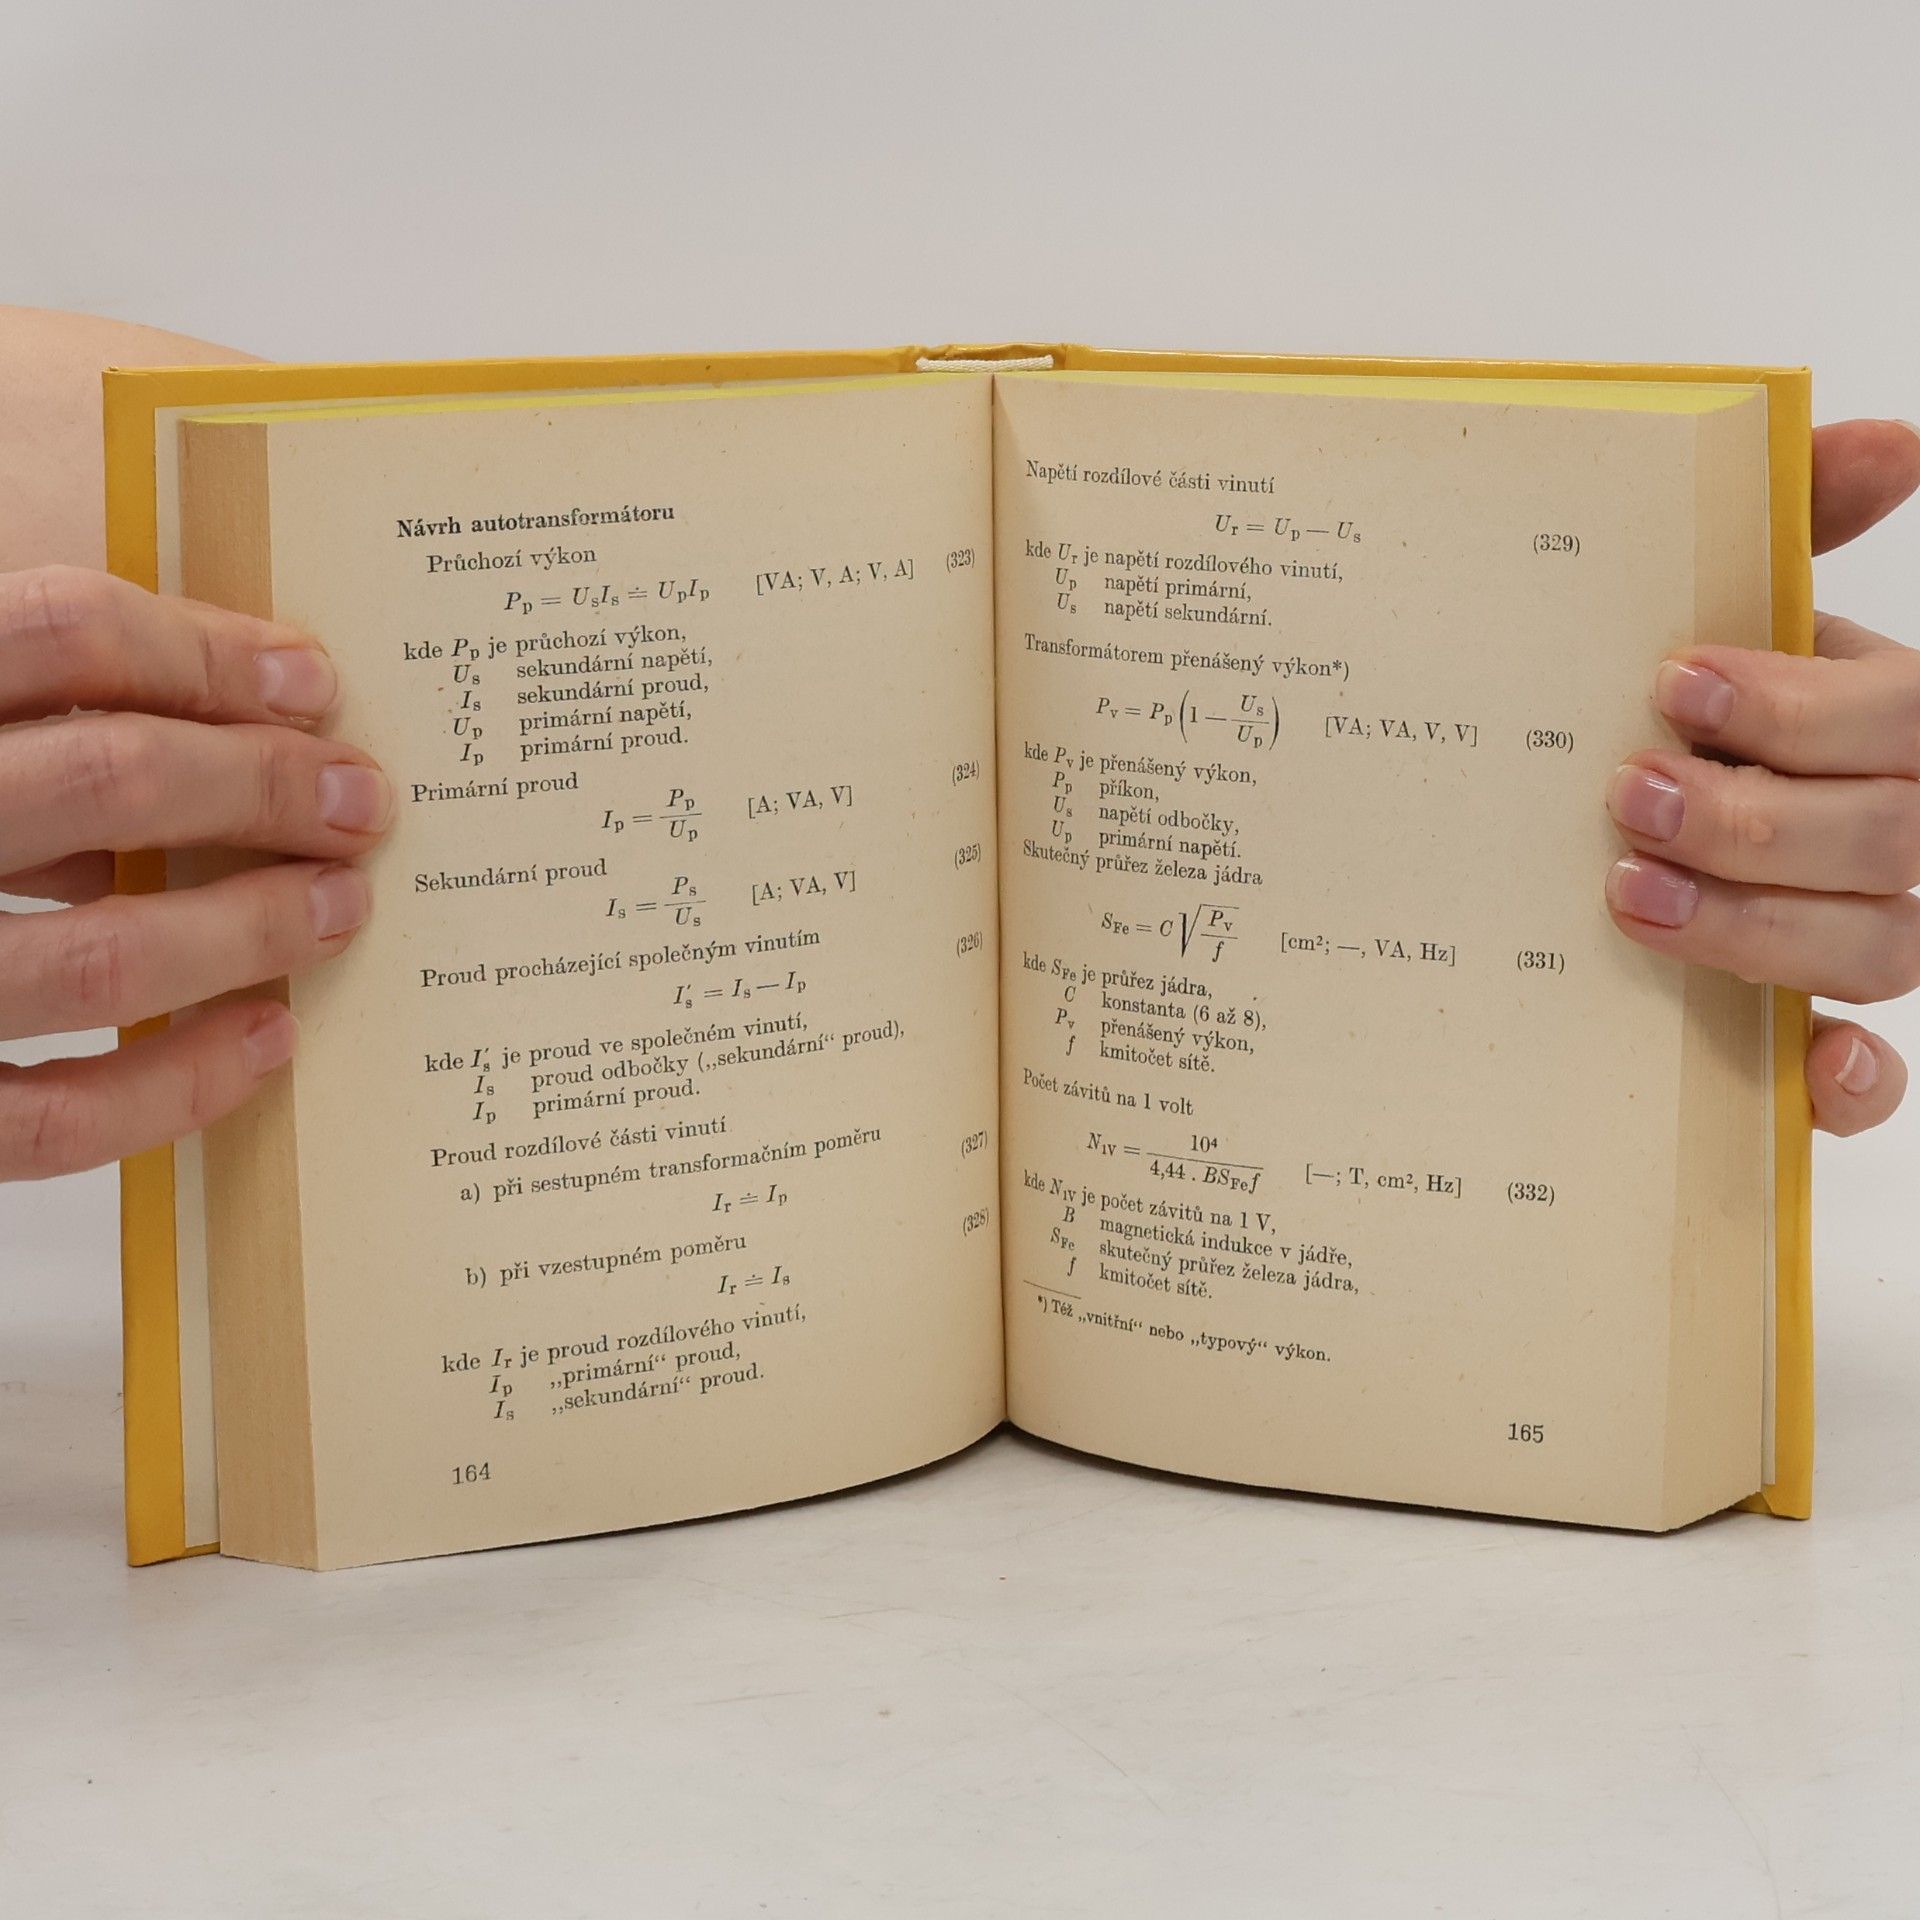 Návrh autotransformátoru
Průchozí výkon
P_p = U_s I_s ≐ U_p I_p [VA; V, A; V, A] (323)
kde P_p je průchozí výkon,
U_s sekundární napětí,
I_s sekundární proud,
U_p primární napětí,
I_p primární proud.
Primární proud
I_p = P_p / U_p [A; VA, V] (324)
Sekundární proud
I_s = P_s / U_s [A; VA, V] (325)
Proud procházející společným vinutím
I′_s = I_s — I_p (326)
kde I′_s je proud ve společném vinutí,
I_s proud odbočky („sekundární“ proud),
I_p primární proud.
Proud rozdílové části vinutí
a) při sestupném transformačním poměru
I_r ≐ I_p (327)
b) při vzestupném poměru
I_r ≐ I_s (328)
kde I_r je proud rozdílového vinutí,
I_p „primární“ proud,
I_s „sekundární“ proud.
164
Napětí rozdílové části vinutí
U_r = U_p — U_s (329)
kde U_r je napětí rozdílového vinutí,
U_p napětí primární,
U_s napětí sekundární.
Transformátorem přenášený výkon*)
P_v = P_p (1 — U_s / U_p) [VA; VA, V, V] (330)
kde P_v je přenášený výkon,
P_p příkon,
U_s napětí odbočky,
U_p primární napětí.
Skutečný průřez železa jádra
S_Fe = C √(P_v / f) [cm²; —, VA, Hz] (331)
kde S_Fe je průřez jádra,
C konstanta (6 až 8),
P_v přenášený výkon,
f kmitočet sítě.
Počet závitů na 1 volt
N_1V = 10⁴ / (4,44 . B S_Fe f) [—; T, cm², Hz] (332)
kde N_1V je počet závitů na 1 V,
B magnetická indukce v jádře,
S_Fe skutečný průřez železa jádra,
f kmitočet sítě.
*) Též „vnitřní“ nebo „typový“ výkon.
165